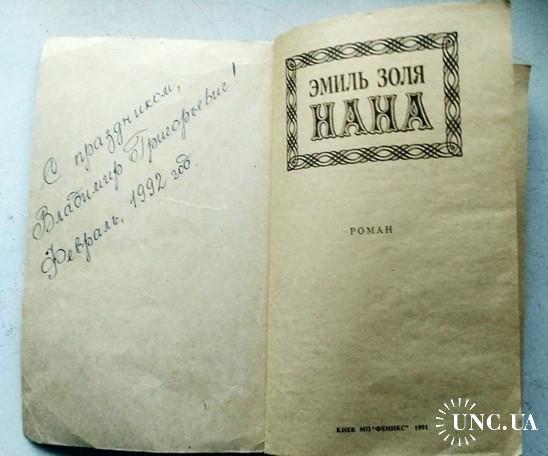 С праздником,
Владимир Григорьевич!
Февраль, 1992 год.
ЭМИЛЬ ЗОЛЯ
НАНА
РОМАН
КИЕВ МП "ФЕНИКС" 1991
UNC.UA